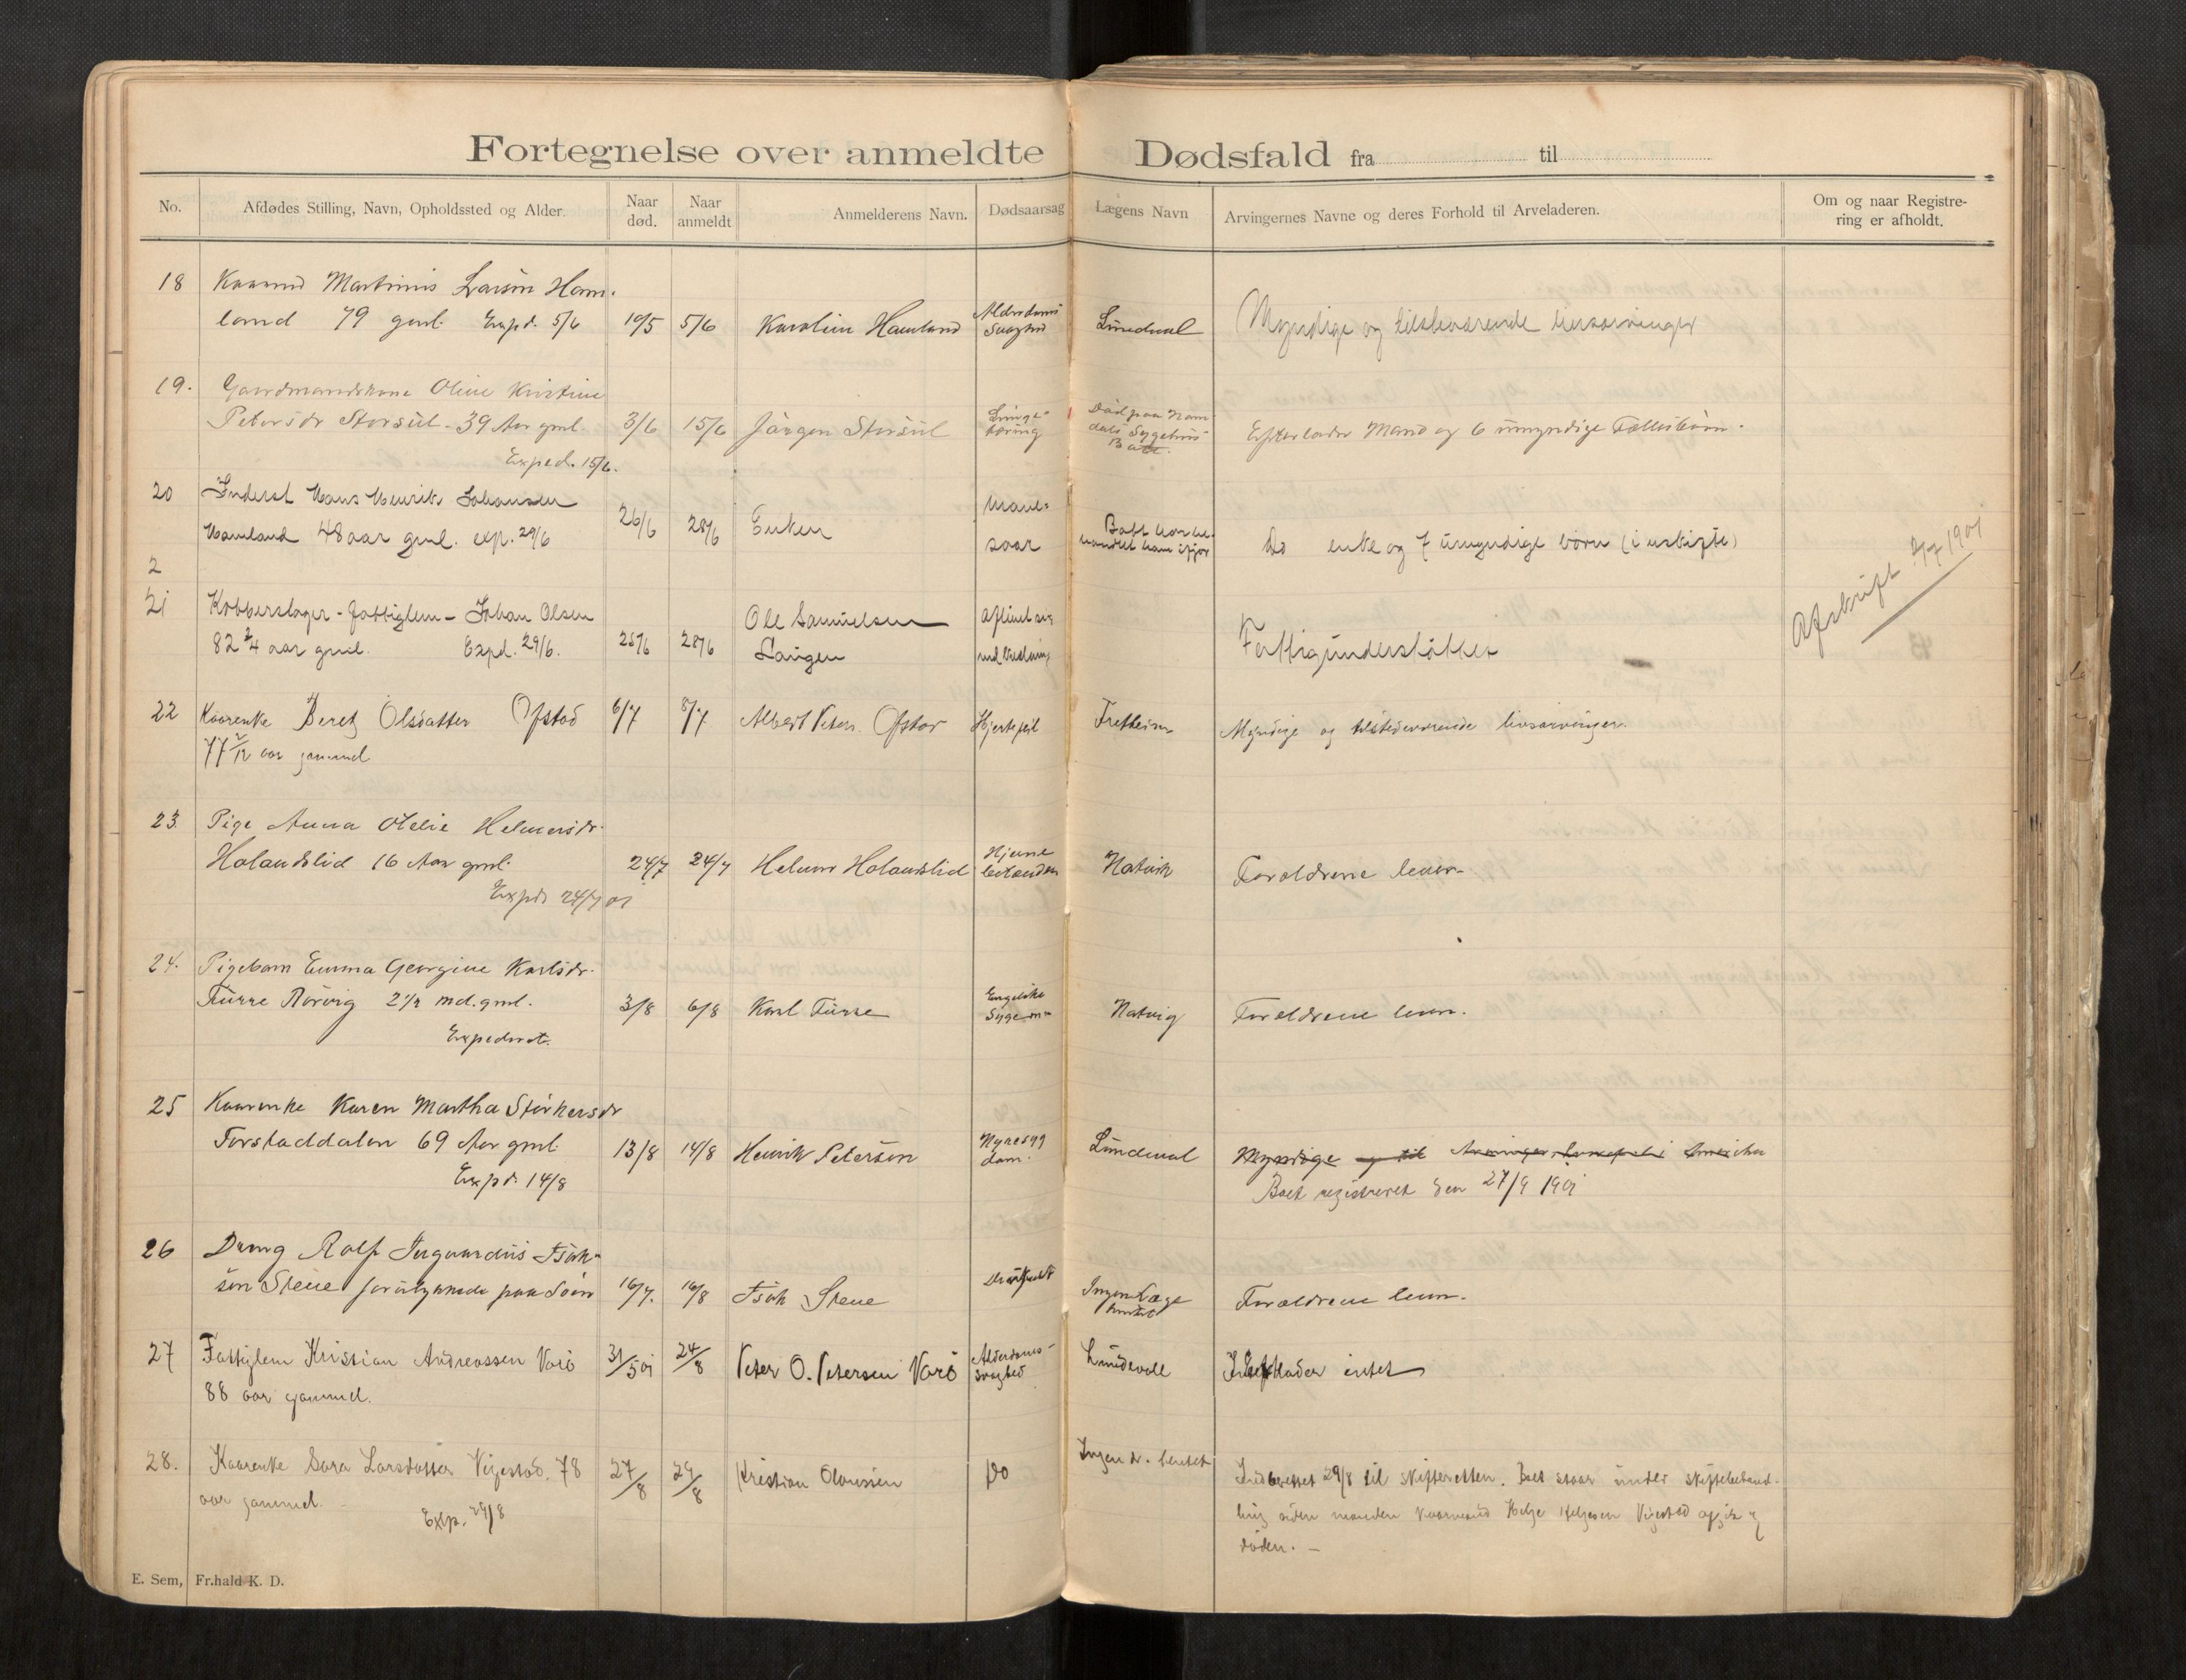 Fortegnelse over anmeldte Dødsfald fra til
No.
Afdødes Stilling, Navn, Opholdssted og Alder.
Naar død.
Naar anmeldt
Anmelderens Navn.
Dødsaarsag
Lægens Navn
Arvingernes Navne og deres Forhold til Arveladeren.
Om og naar Registre-
ring er afholdt.
18 Kaarmd Martinus Larsen Ham-
land 79 gml. Expd. 5/6 19/5 5/6 Karoline Hamland
Alderdoms
svaghed
Lundevall
Myndige og tilstedeværende livsarvinger
19. Gaardmandskone Oline Kristine
Petersdr Storsul 39 Aar gml. 3/6 15/6 Jørgen Storsul
Exped. 15/6.
Lunge-
tæring
Død paa Nam-
dals Sygehus
Efterlader Mand og 6 umyndige Fællesbørn.
20 Inderst Hans Henrik Johansen
Hamland 48 aar gml. exp. 29/6 26/6 28/6 Enken
Mave-
saar
Do enke og 7 umyndige børn (i uskifte)
2
21 Kobberslager - fattiglem - Johan Olsen
82 3/4 aar gml. Expd. 29/6. 25/6 28/6
Ole Samuelsen
Laugen
Fattigunderstøttet
Afskrift 2/7 1901
22 Kaarenke Beret Olsdatter Ofstad 6/7 8/7 Albert Peter Ofstad Hjertefeil Fretheim
77 2/12 aar gammel
Myndige og tilstedeværende livsarvinger.
23. Pige Anna Otelie Helmersdr.
Holandslid 16 Aar gml. 24/7 24/7 Helmer Holandslid
Expd 24/7 01
Hjerne
betænden
Natvik
Forældrene lever.
24. Pigebarn Emma Georgine Karlsdr.
Furre Rørvig 2 1/2 md. gml. 3/8 6/8 Karl Furre
Expederet.
Engelske
Syge
Natvig
Forældrene lever.
25 Kaarenke Karen Martha Størkersdr
Forstaddalen 69 Aar gml. 13/8 14/8 Henrik Petersen
Expd. 14/8
Nyresyg
dom.
Lundevall
Myndige og til Arvinger Amerika
Boet registreret den 27/9 1901
26 Dreng Rolf Ingvardus Isak-
sen Stene forulykkede paa Søen 16/7. 16/8 Isak Stene
Druknet
Ingen Læge
hentet
Forældrene lever.
27 Fattiglem Kristian Andreassen Varø 31/5 01 24/8 Peter O. Petersen Varø
88 aar gammel.
Alderdoms-
svaghed
Lundevall
Efterlader intet
28. Kaarenke Sara Larsdatter Vigestad. 78 27/8 29/8 Kristian Olaussen Do
aar gammel.
Exp. 29/8
Ingen dr. hentet
Indberettet 29/8 til skifteretten. Boet staar under skiftebehand-
ling siden manden kaarmand Helge Helgesen Vigestad afgik v
døden. -
E. Sem, Fr.hald K. D.